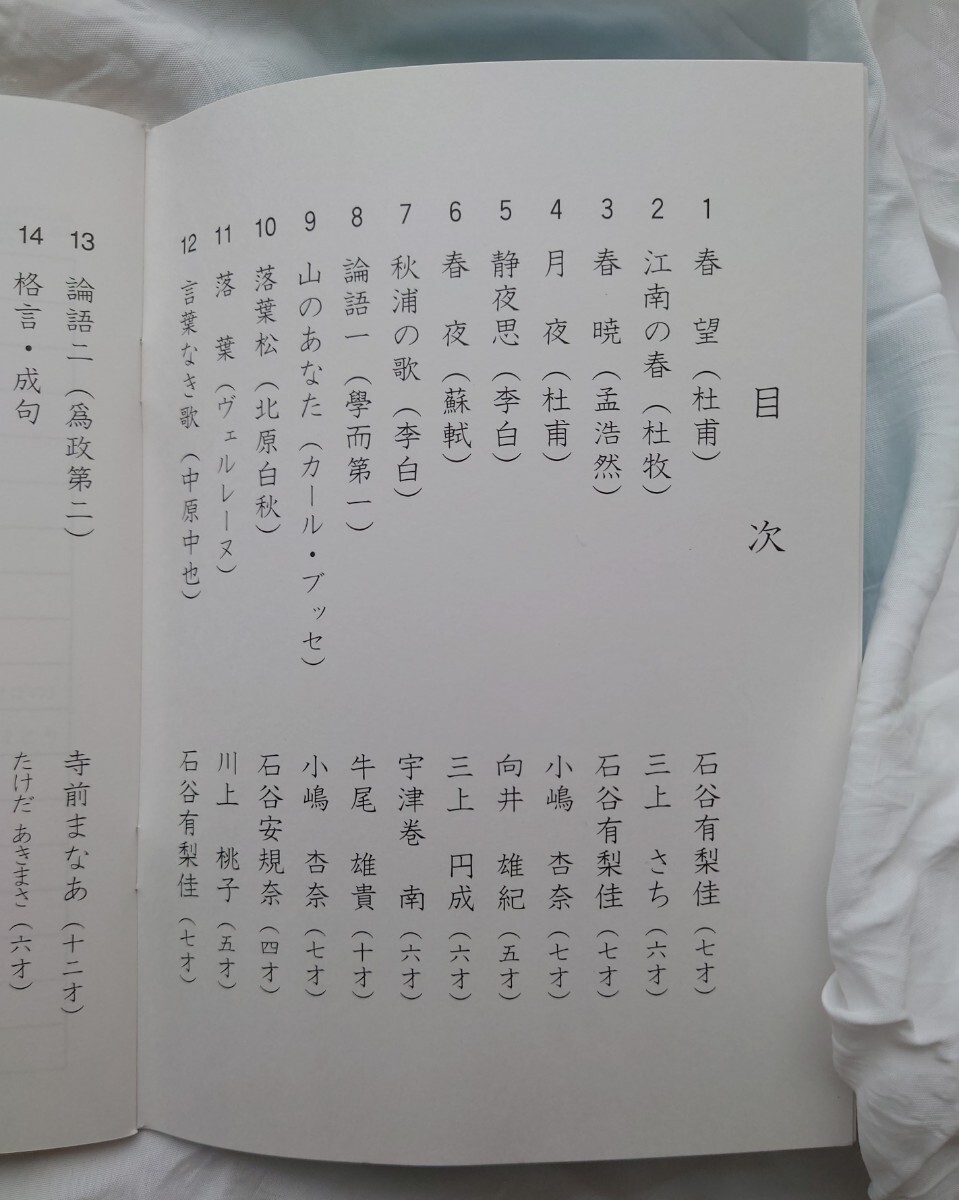 目次
1 春 望（杜甫） 石谷有梨佳（七才）
2 江南の春（杜牧） 三上 さち（六才）
3 春 暁（孟浩然） 石谷有梨佳（七才）
4 月 夜（杜甫） 小嶋 杏奈（七才）
5 静夜思（李白） 向井 雄紀（五才）
6 春 夜（蘇軾） 三上 円成（六才）
7 秋浦の歌（李白） 宇津巻 南（六才）
8 論語一（學而第一） 牛尾 雄貴（十才）
9 山のあなた（カール・ブッセ） 小嶋 杏奈（七才）
10 落葉松（北原白秋） 石谷安規奈（四才）
11 落 葉（ヴェルレーヌ） 川上 桃子（五才）
12 言葉なき歌（中原中也） 石谷有梨佳（七才）
13 論語二（爲政第二） 寺前まなあ（十二才）
14 格言・成句 たけだ あきまさ（六才）